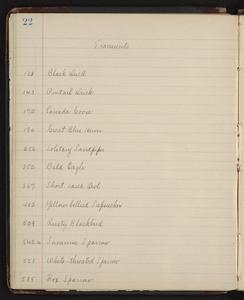 22
Transients
133 Black Duck
143 Pintail Duck
172 Canada Goose
194 Great Blue Heron
256 Solitary Sandpiper
352 Bald Eagle
367 Short eared Owl
402 Yellow-bellied Sapsucker
509 Rusty Blackbird
542a Savanna Sparrow
558 White-throated Sparrow
585 Fox Sparrow